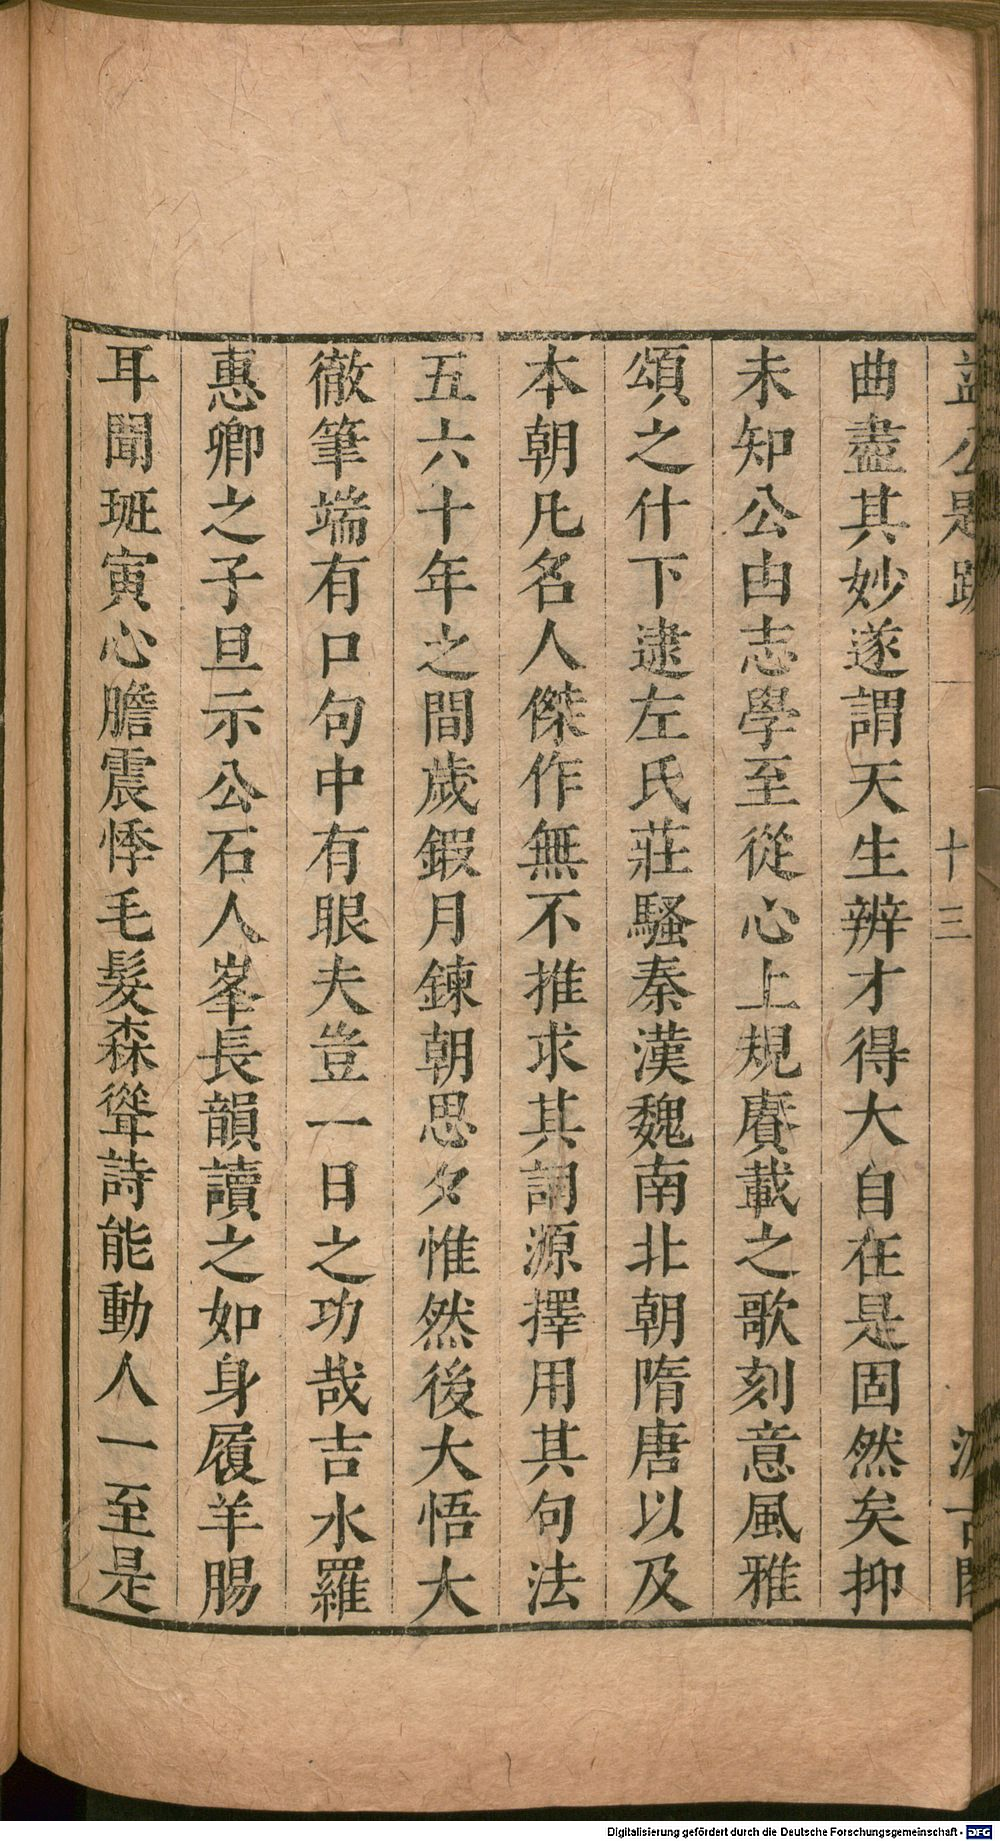 益公題跋 十三 汲古閣
曲盡其妙遂謂天生辨才得大自在是固然矣抑
未知公由志學至從心上規賡載之歌刻意風雅
頌之什下逮左氏莊騷秦漢魏南北朝隋唐以及
本朝凡名人傑作無不推求其詞源擇用其句法
五六十年之間歲鍜月鍊朝思夕惟然後大悟大
徹筆端有口句中有眼夫豈一日之功哉吉水羅
惠卿之子旦示公石人峯長韻讀之如身履羊腸
耳聞班寅心膽震悸毛髮森聳詩能動人一至是
Digitalisierung gefördert durch die Deutsche Forschungsgemeinschaft - DFG